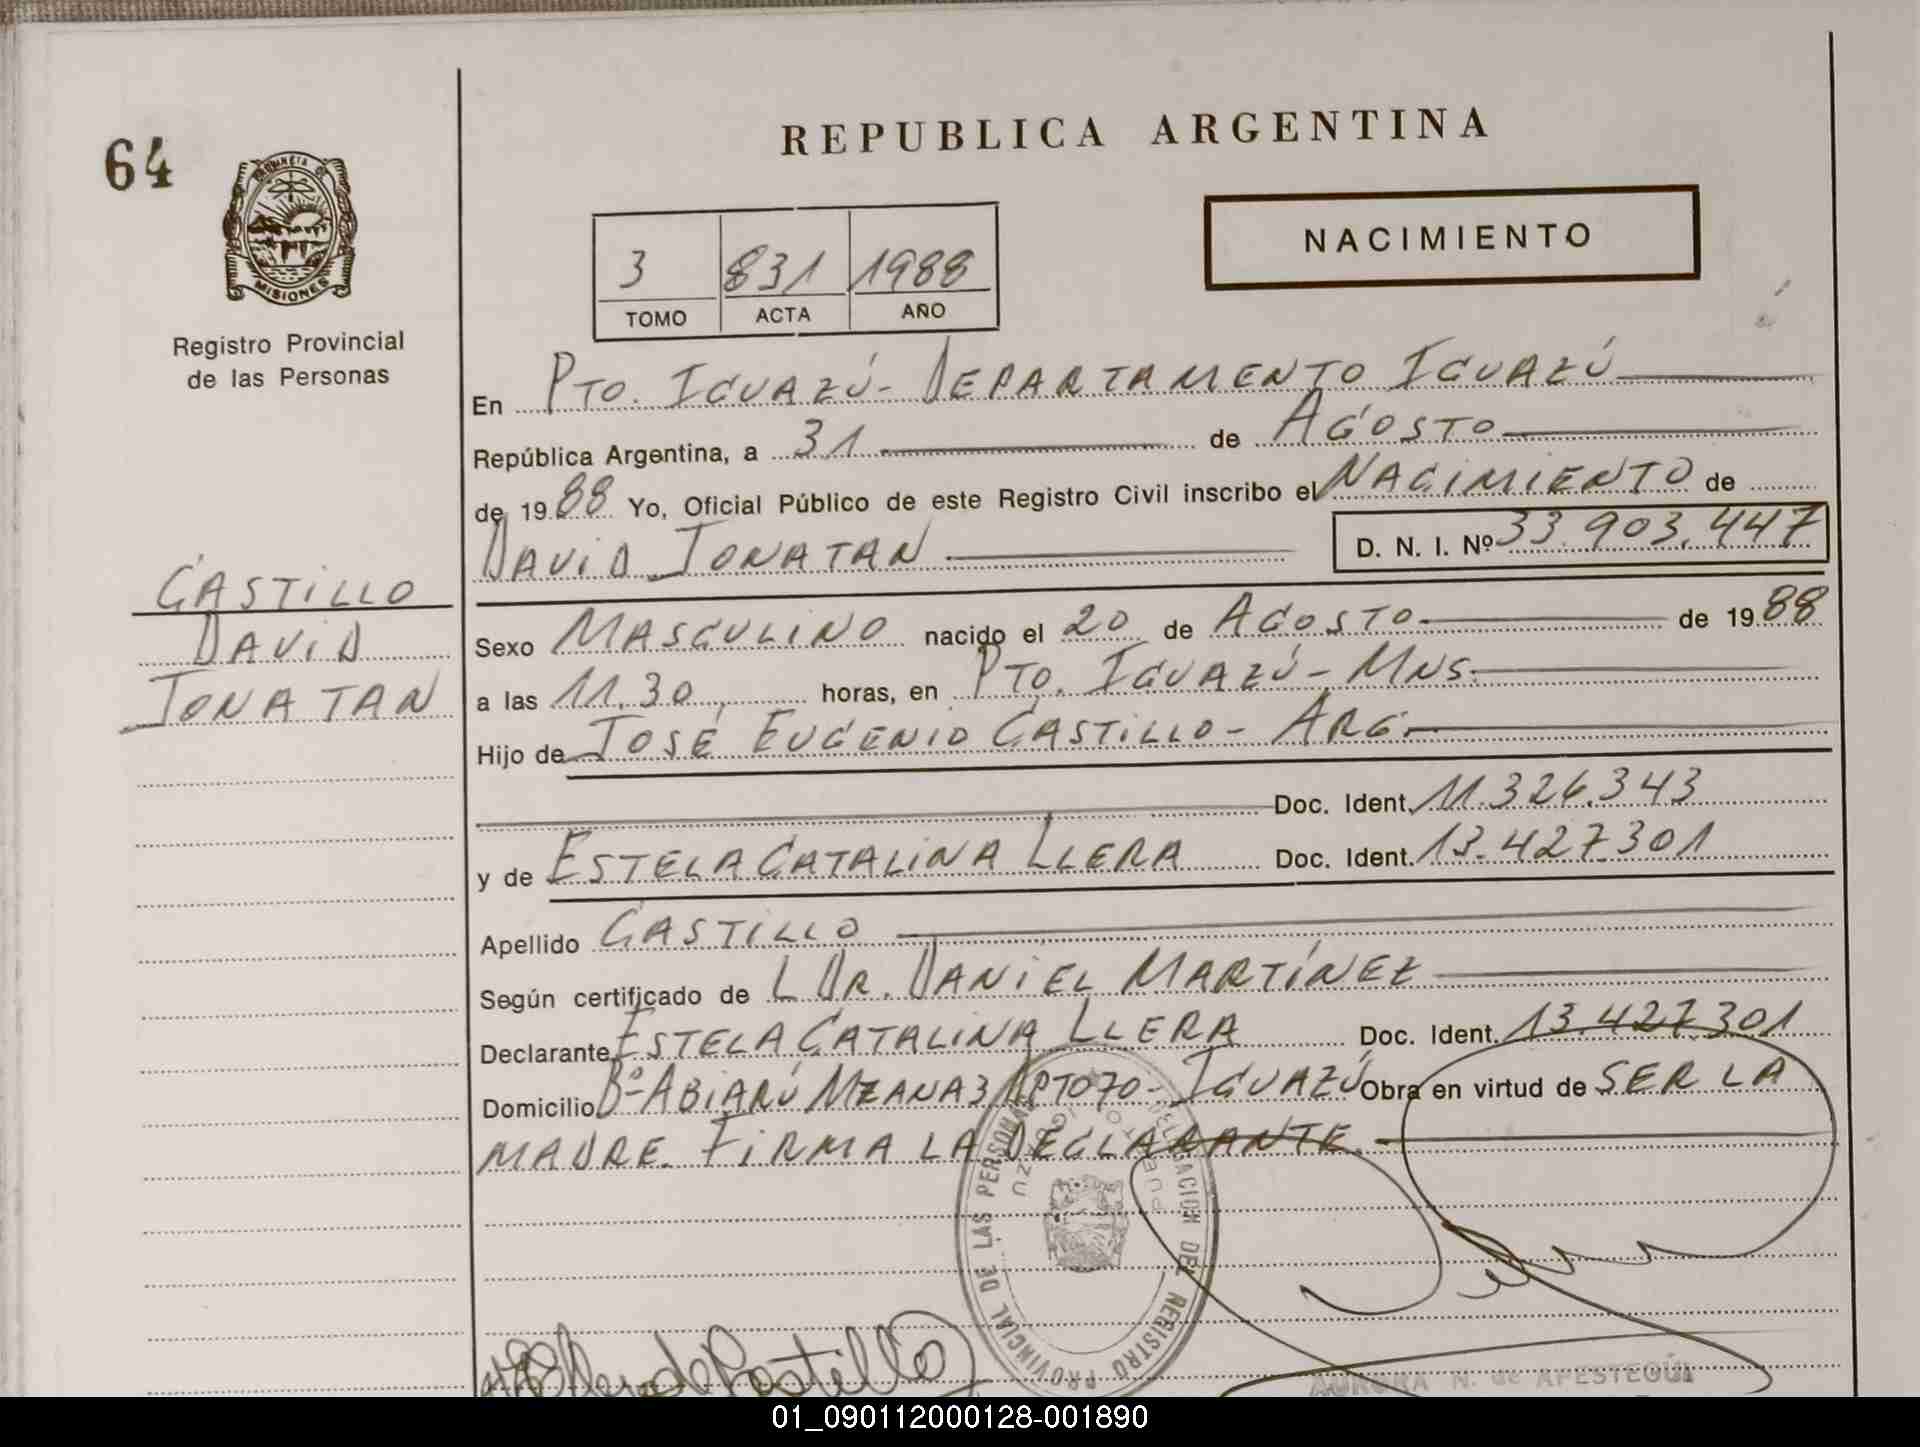 64
PROVINCIA DE
MISIONES
Registro Provincial
de las Personas
REPUBLICA ARGENTINA
NACIMIENTO
3 831 1988
TOMO ACTA AÑO
En PTO. IGUAZÚ - DEPARTAMENTO IGUAZÚ
República Argentina, a 31 de AGOSTO
de 1988 Yo, Oficial Público de este Registro Civil inscribo el NACIMIENTO de
DAVID JONATAN D. N. I. Nº 33.903.447
CASTILLO
DAVID
JONATAN
Sexo MASCULINO nacido el 20 de AGOSTO de 1988
a las 11,30 horas, en PTO. IGUAZÚ - MNS.
Hijo de JOSÉ EUGENIO CASTILLO - ARG.
Doc. Ident. 11.326.343
y de ESTELA CATALINA LLERA Doc. Ident. 13.427.301
Apellido CASTILLO
Según certificado de L DR. DANIEL MARTÍNEZ
Declarante ESTELA CATALINA LLERA Doc. Ident. 13.427.301
Domicilio Bº ABIARÚ MZANA 3 DPTO 70 - IGUAZÚ Obra en virtud de SER LA
MADRE. FIRMA LA DECLARANTE.
DELEGACION DEL REGISTRO PROVINCIAL DE LAS PERSONAS
PUERTO IGUAZU
de Castillo
AURORA N. de APESTEGÚI
01_090112000128-001890